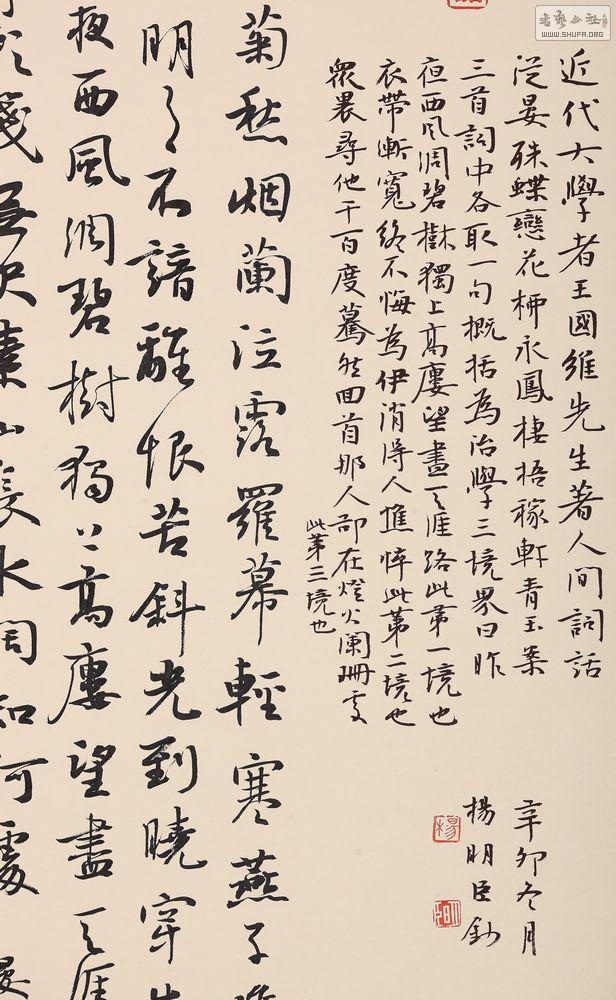 书艺公社
WWW.SHUFA.ORG
近代大學者王國維先生著人间詞話
從晏殊蝶戀花柳永鳳棲梧稼軒青玉案
三首詞中各取一句概括為治學三境界曰昨
夜西风凋碧樹獨上高廔望盡天涯路此第一境也
衣帶漸寬終不悔為伊消得人憔悴此第二境也
眾裏尋他千百度驀然回首那人卻在燈火闌珊處
此第三境也
辛卯冬月
楊明臣鈔
楊
菊愁烟蘭泣露羅幕輕寒燕子
明月不諳離恨苦斜光到曉穿
夜西風凋碧樹獨上高廔望盡天涯
箋無尺素山長水闊知何處